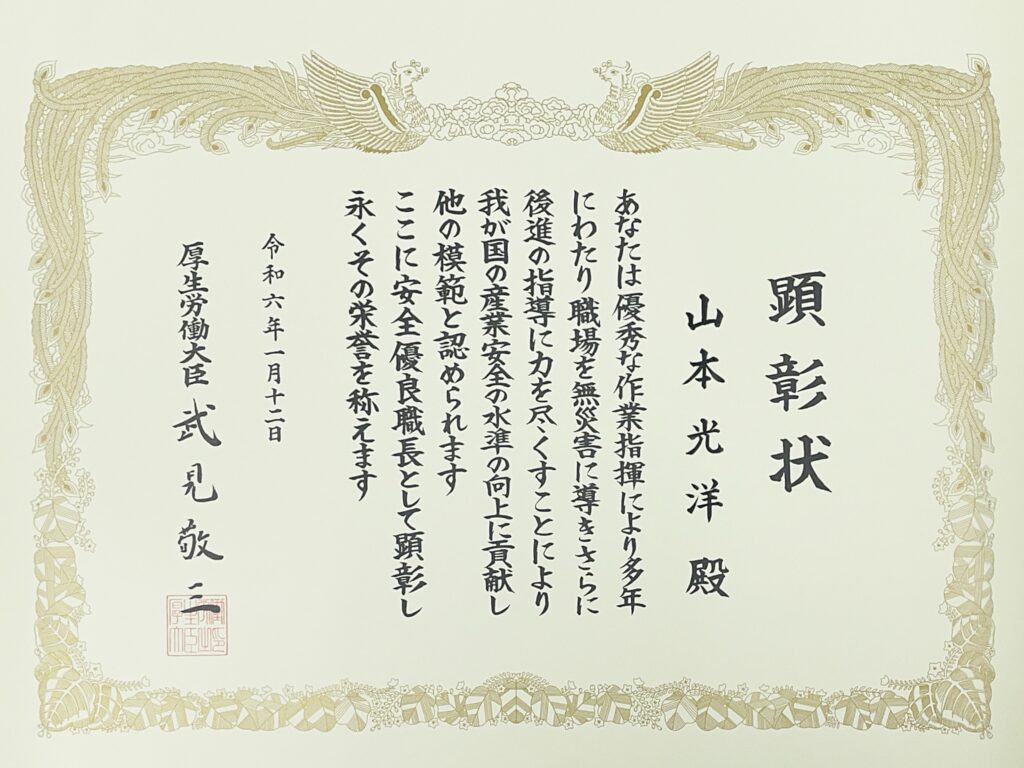 顕彰状
山本光洋殿
あなたは優秀な作業指揮により多年
にわたり職場を無災害に導きさらに
後進の指導に力を尽くすことにより
我が国の産業安全の水準の向上に貢献し
他の模範と認められます
ここに安全優良職長として顕彰し
永くその栄誉を称えます
令和六年一月十二日
厚生労働大臣 武見敬三